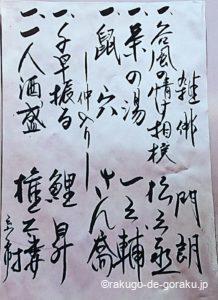 一、雑俳 門朗
一、谷風の情け相撲 松之丞
一、茶の湯 一之輔
一、鼠穴 さん喬
―仲入り―
一、千早振る 鯉昇
一、一人酒盛 権太楼
©rakugo-de-goraku.jp